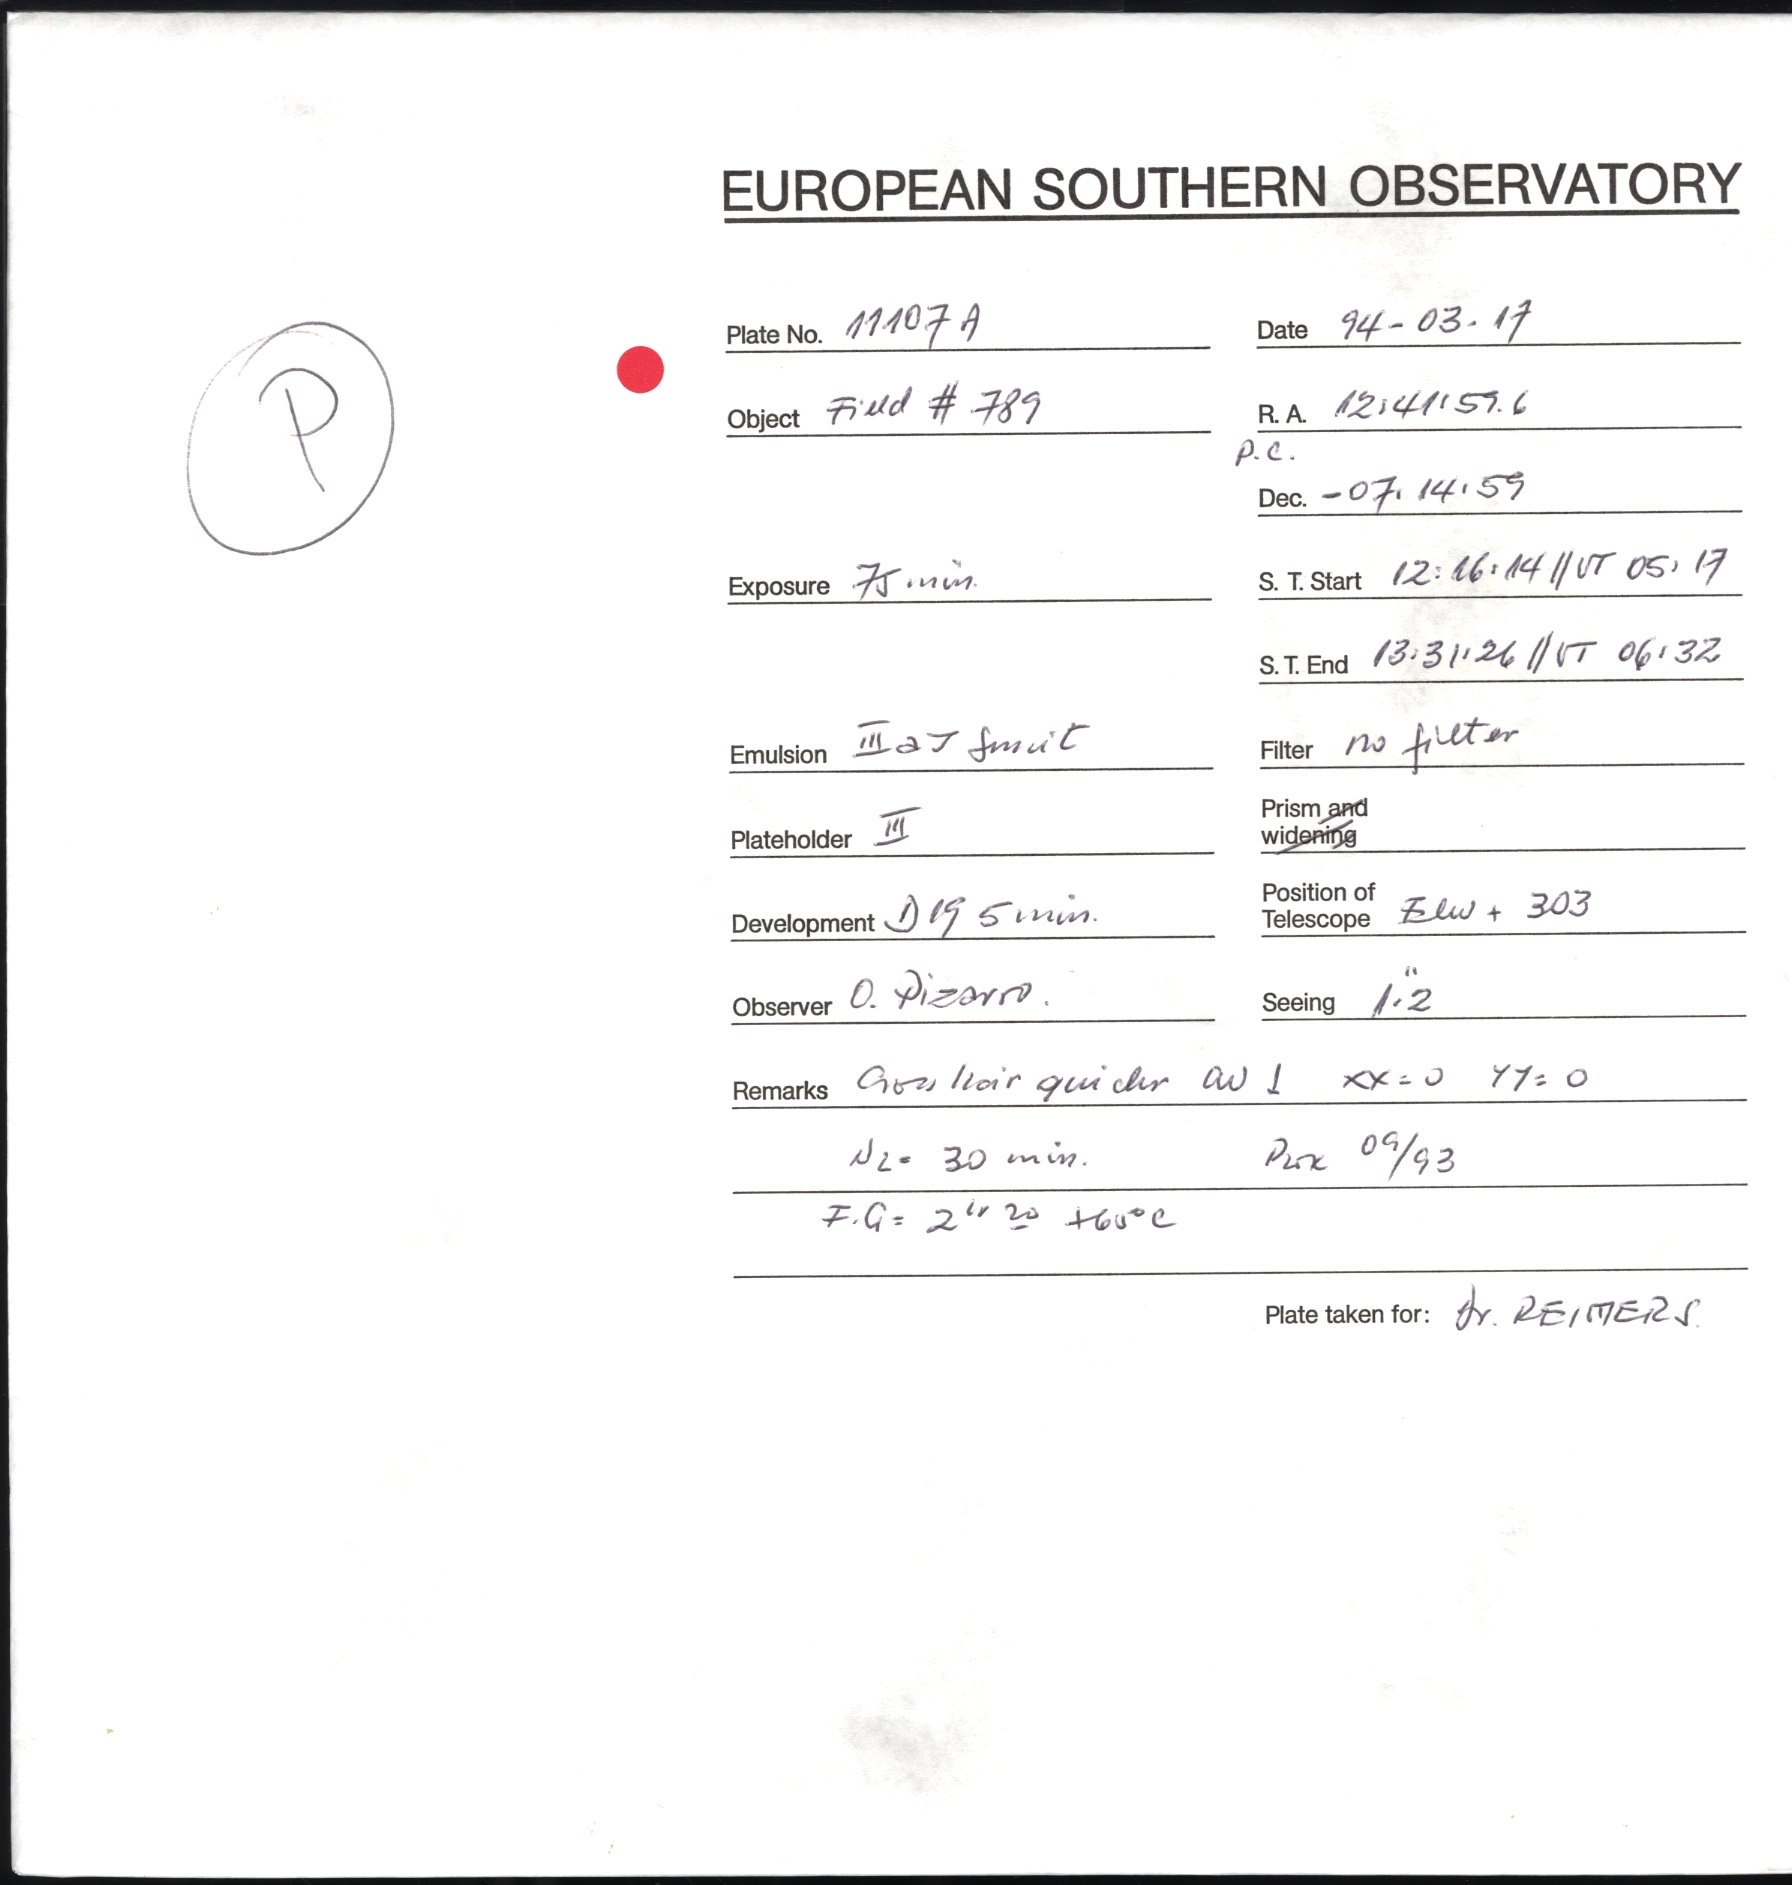 EUROPEAN SOUTHERN OBSERVATORY
P
Plate No. 11107A Date 94-03-17
Object Field # 789 R. A. 12:41:59.6
P.C.
Dec. -07:14:59
Exposure 75 min. S. T. Start 12:16:14 // UT 05:17
S. T. End 13:31:26 // UT 06:32
Emulsion III a J Filter no filter
Plateholder III Prism and
widening
Development D19 5 min. Position of
Telescope + 303
Observer O. Pizarro. Seeing 1."2
Remarks xx=0 yy=0
N2= 30 min. 09/93
F.G=
Plate taken for: Dr. REIMERS.